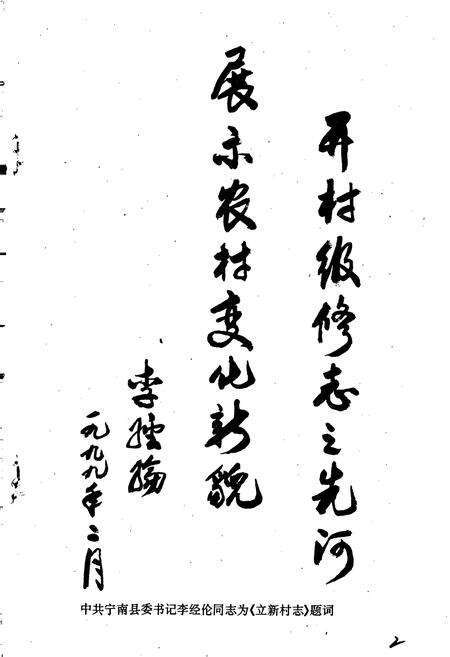 开村级修志之先河
展示农村变化新貌
李经伦
一九九九年二月
中共宁南县委书记李经伦同志为《立新村志》题词
2